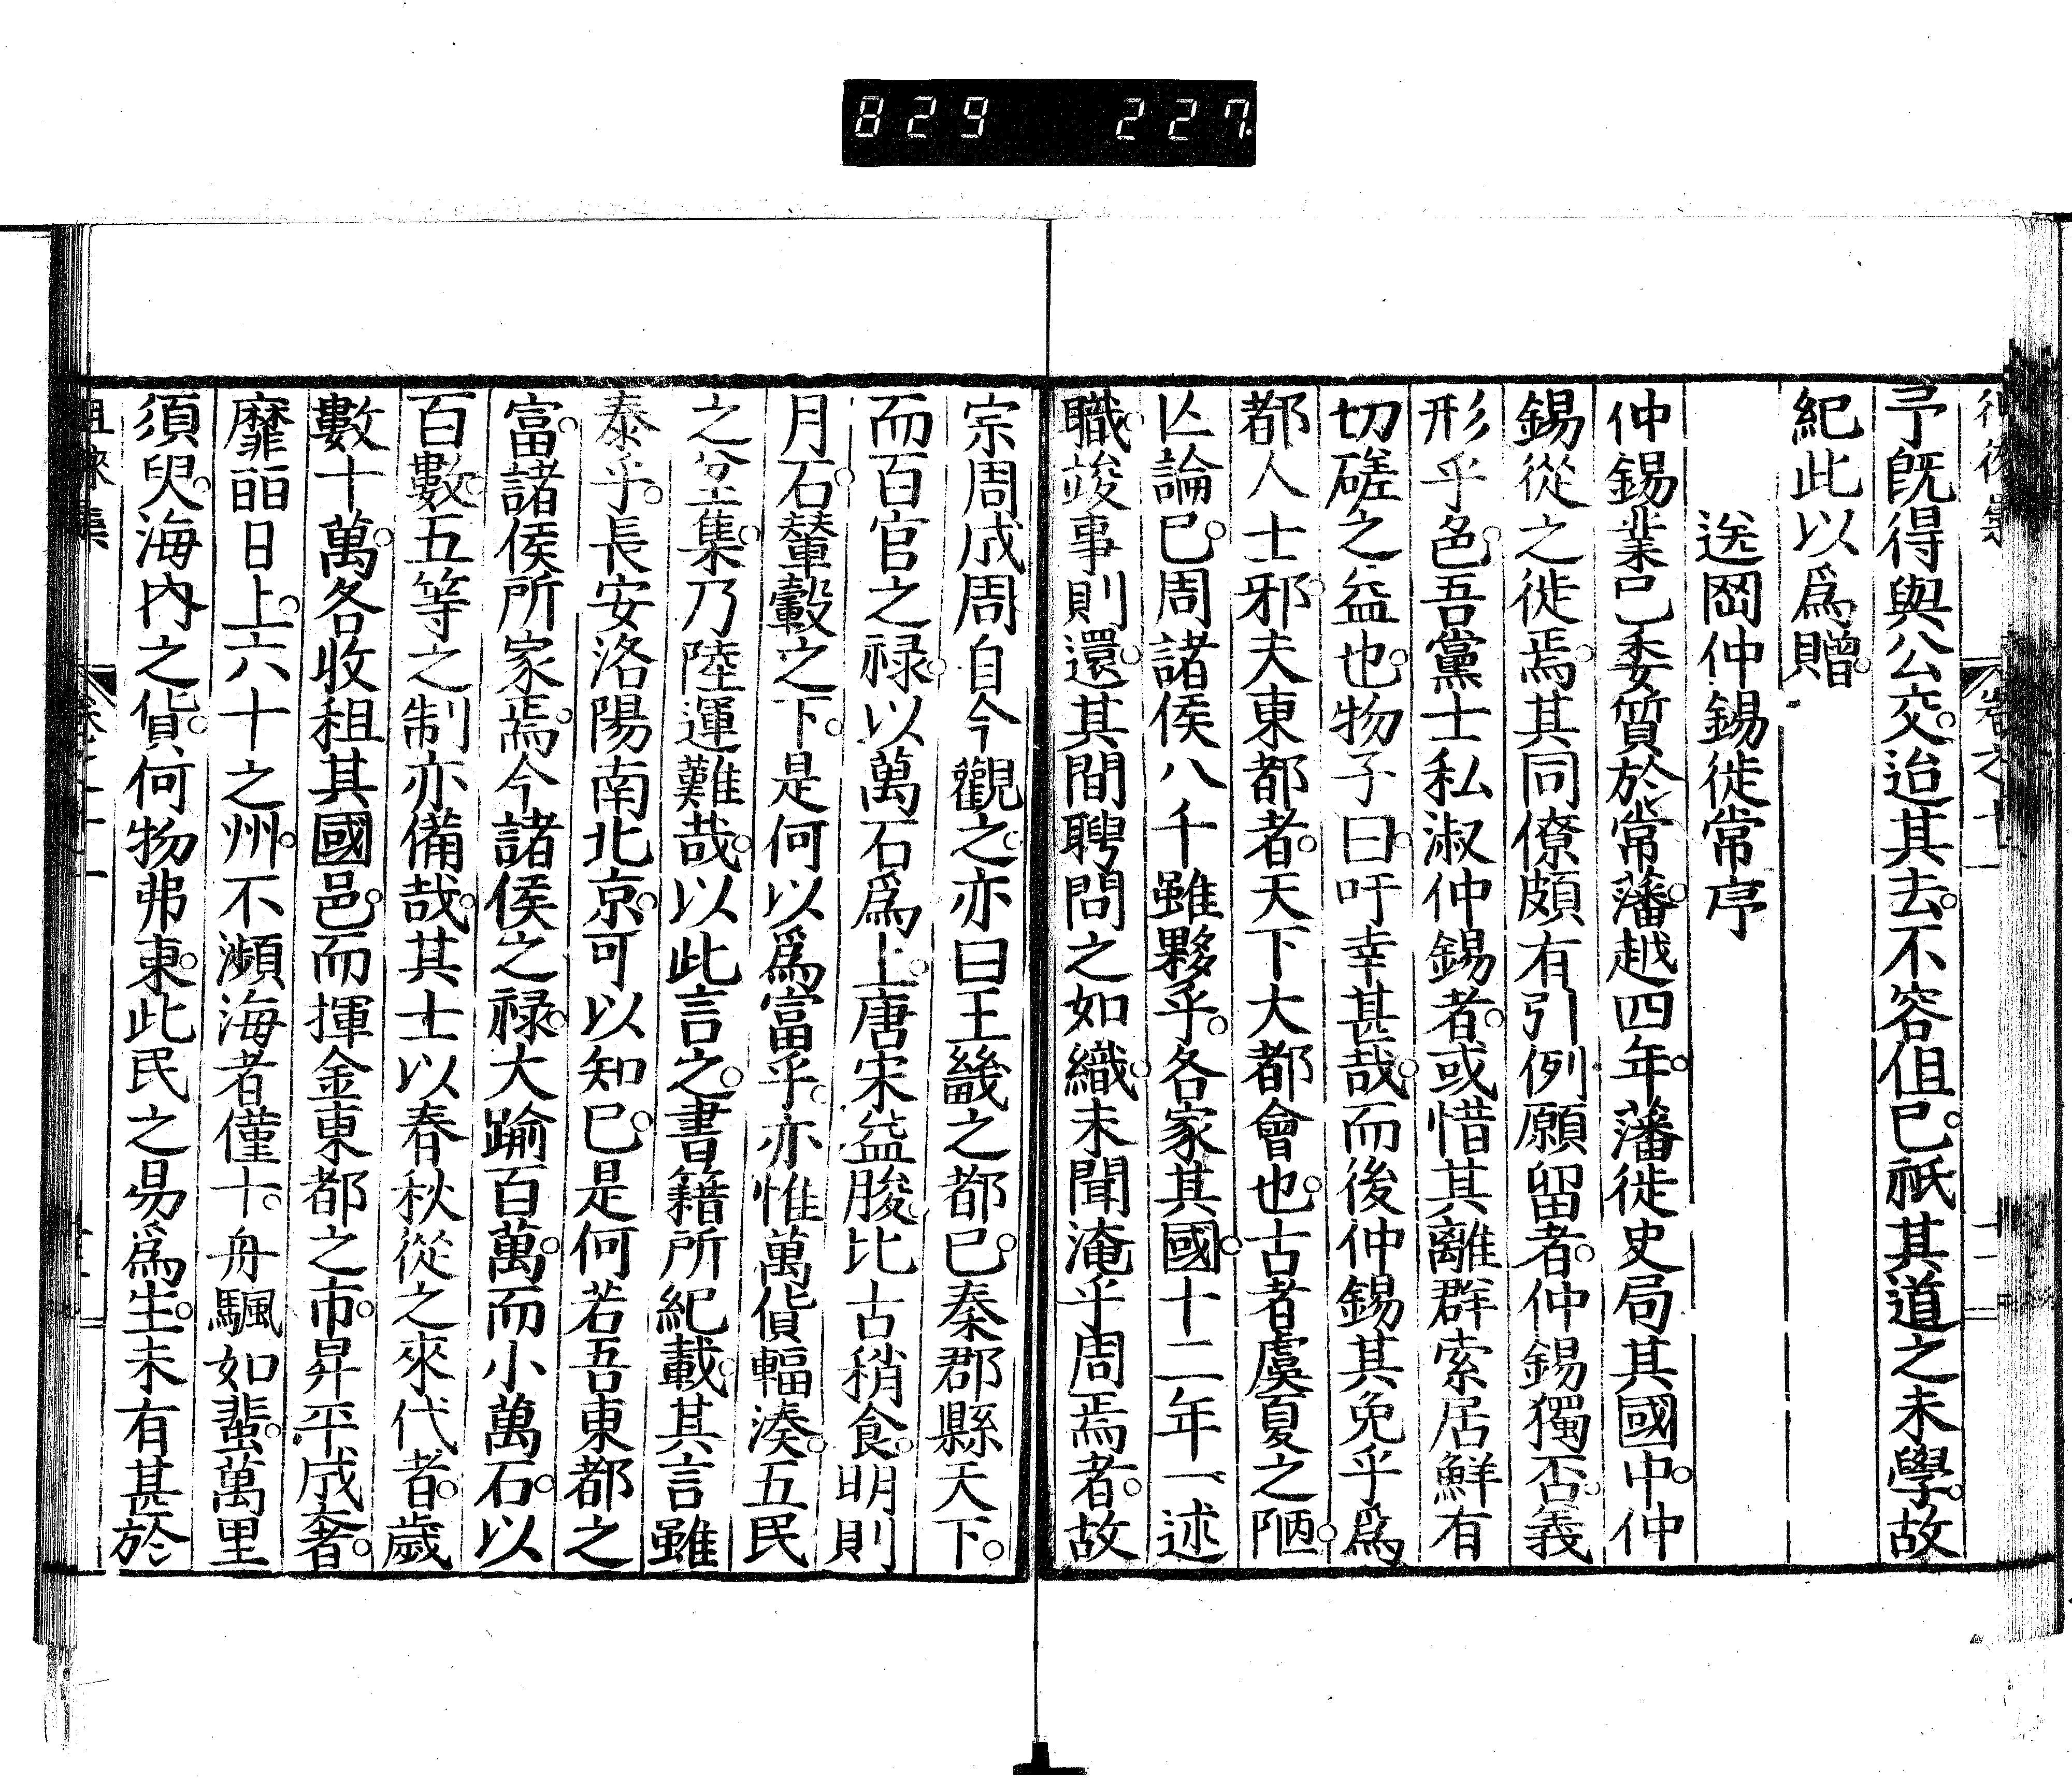 829 227
予既得與公交。迨其去。不容但已。祇其道之未學。故
紀此以爲贈。
送岡仲錫徙常序
仲錫業已委質於常藩。越四年。藩徙史局其國中。仲
錫從之徙焉。其同僚頗有引例願留者。仲錫獨否。義
形乎色。吾黨士私淑仲錫者。或惜其離群索居鮮有
切磋之益也。物子曰。吁幸甚哉。而後仲錫其免乎爲
都人士邪。夫東都者。天下大都會也。古者虞夏之陋。
亾論已。周諸侯八千雖夥乎。各家其國。十二年一述
職。竣事則還。其間聘問之如織。未聞淹乎周焉者。故
宗周成周自今觀之。亦曰王畿之都已。秦郡縣天下。
而百官之祿。以萬石爲上。唐宋益朘。比古稍食。明則
月石。輦轂之下。是何以爲富乎。亦惟萬貨輻湊。五民
之坌集。乃陸運難哉。以此言之。書籍所紀載。其言雖
泰乎。長安洛陽南北京。可以知已。是何若吾東都之
富。諸侯所家焉。今諸侯之祿。大踰百萬。而小萬石。以
百數。五等之制亦備哉。其士以春秋從之來代者。歲
數十萬。各收租其國邑。而揮金東都之市。昇平成奢。
靡䴡日上。六十之州。不瀕海者僅十。舟颿如蜚。萬里
須臾。海內之貨。何物弗東。此民之易爲生。未有甚於